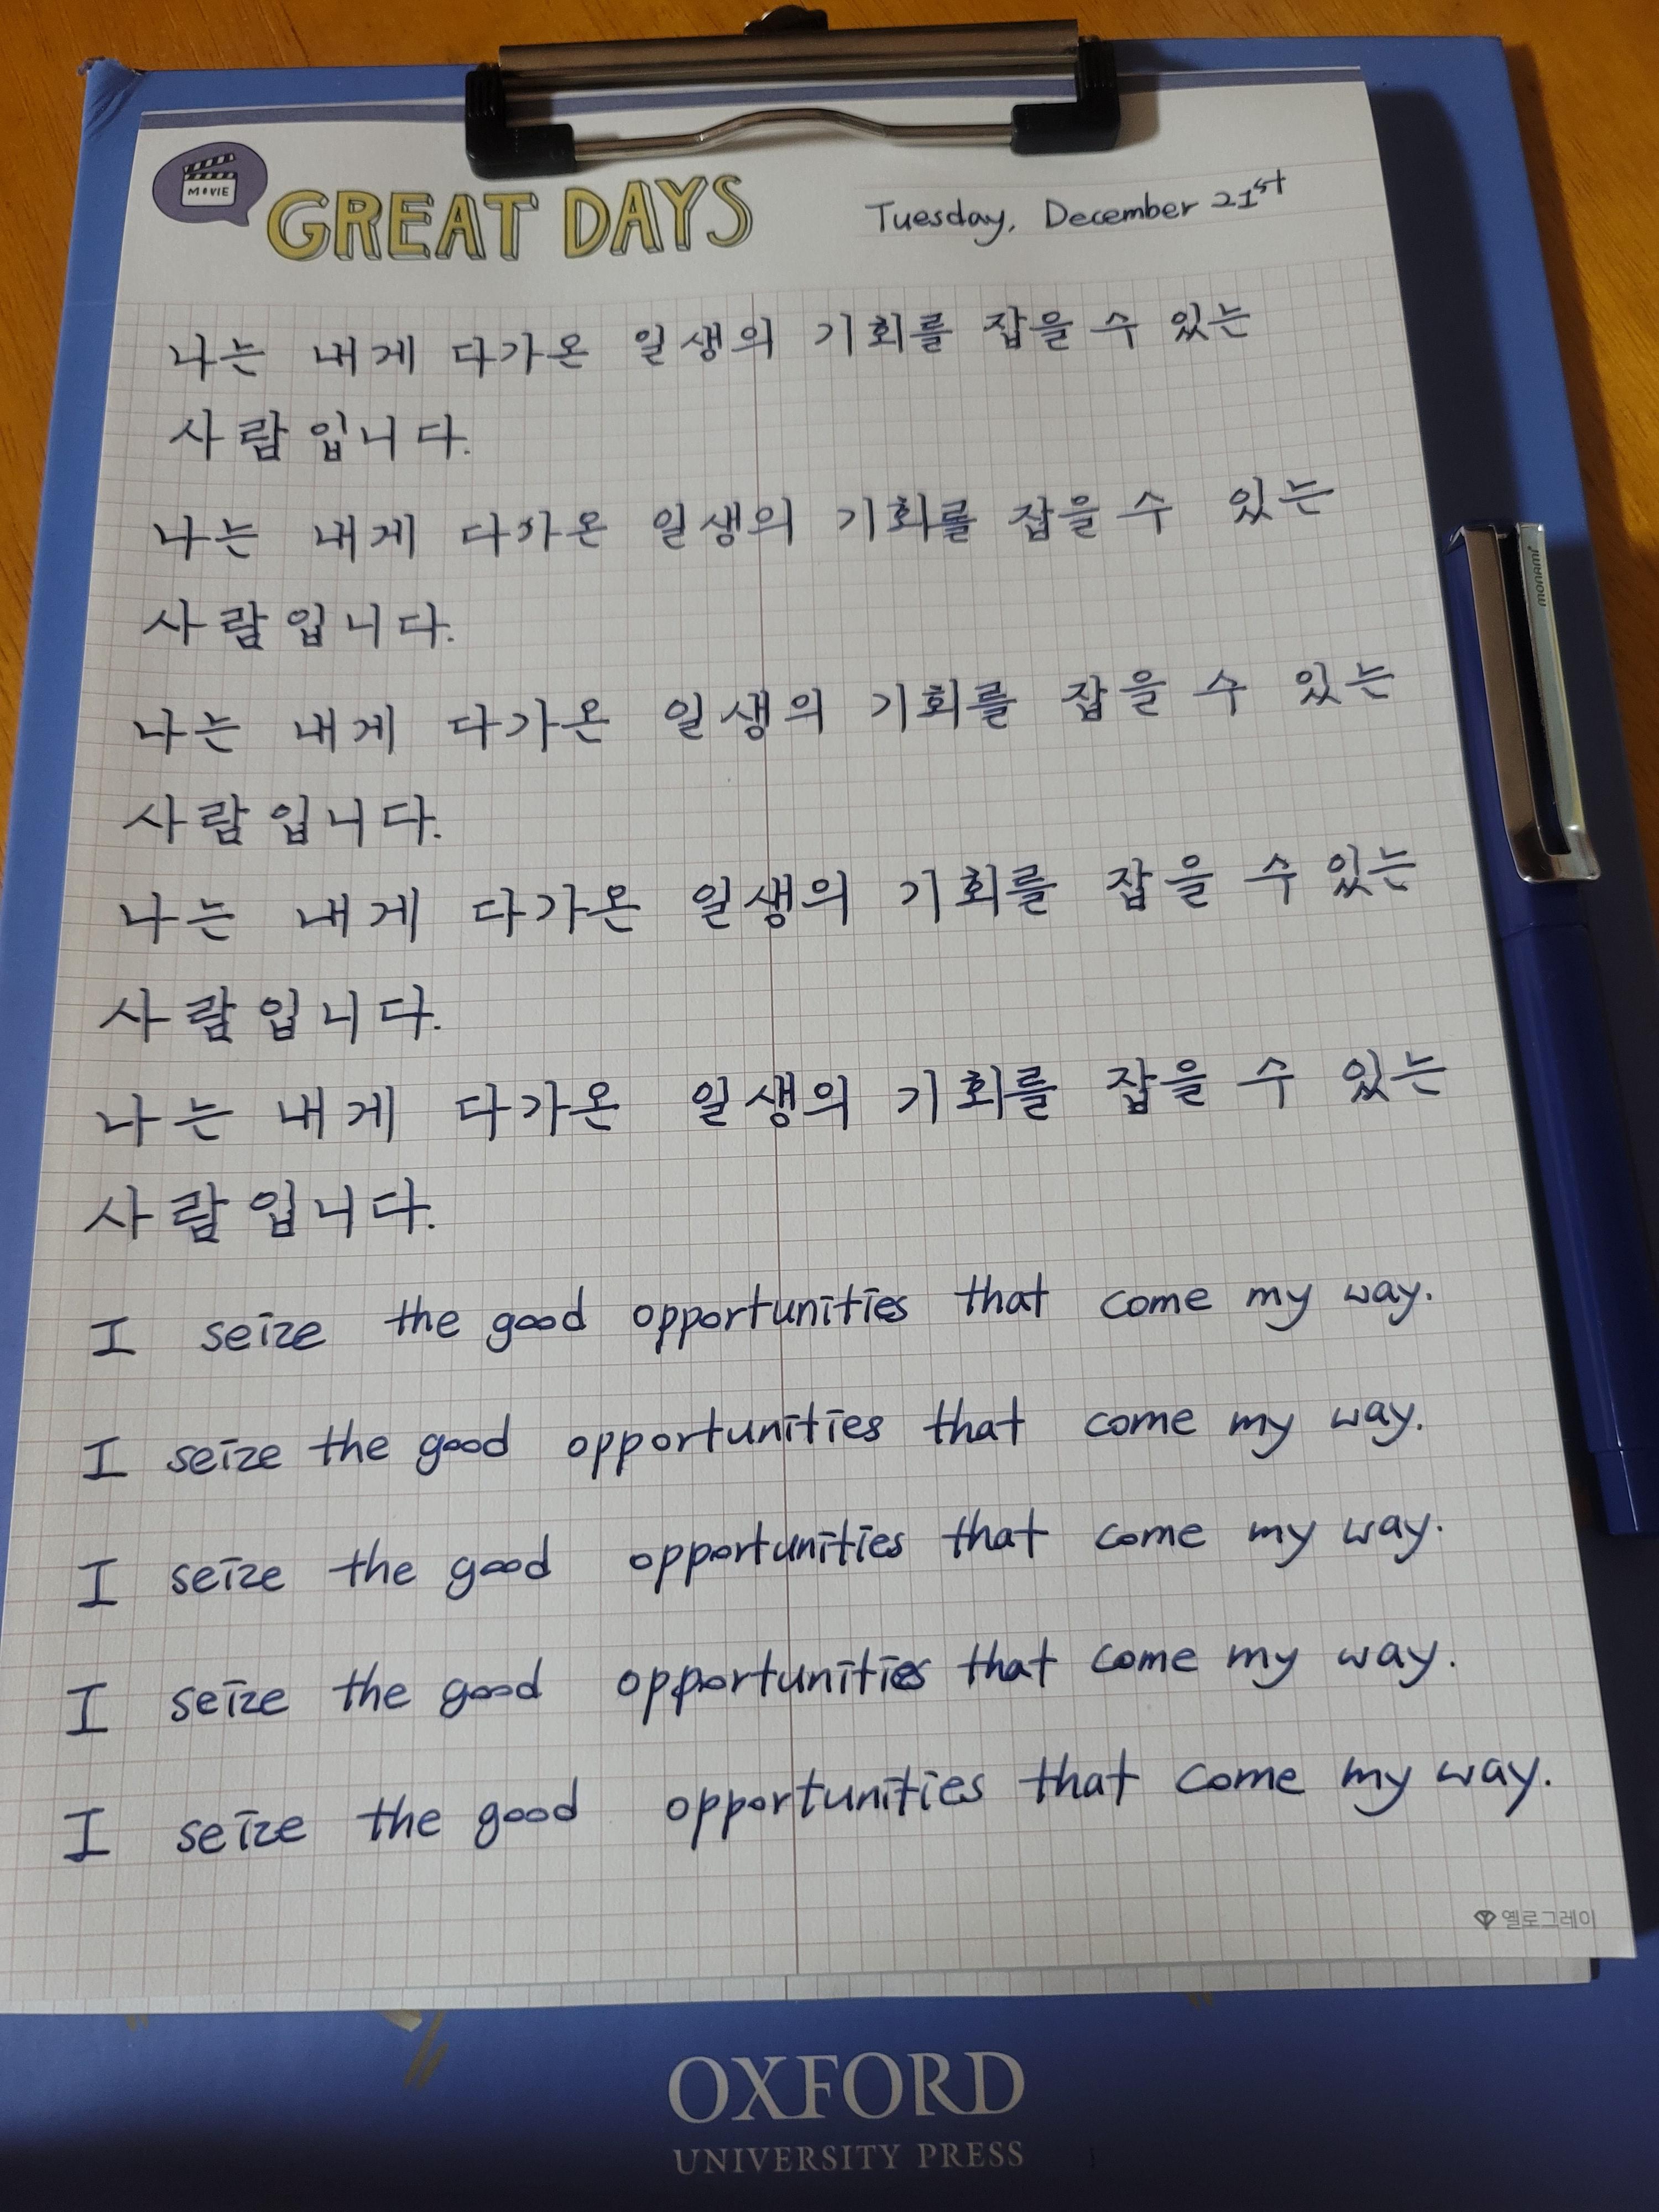 MOVIE
GREAT DAYS
Tuesday, December 21st
나는 내게 다가온 일생의 기회를 잡을 수 있는
사람입니다.
나는 내게 다가온 일생의 기회를 잡을 수 있는
사람입니다.
나는 내게 다가온 일생의 기회를 잡을 수 있는
사람입니다.
나는 내게 다가온 일생의 기회를 잡을 수 있는
사람입니다.
나는 내게 다가온 일생의 기회를 잡을 수 있는
사람입니다.
I seize the good opportunities that come my way.
I seize the good opportunities that come my way.
I seize the good opportunities that come my way.
I seize the good opportunities that come my way.
I seize the good opportunities that come my way.
옐로그레이
monami
OXFORD
UNIVERSITY PRESS